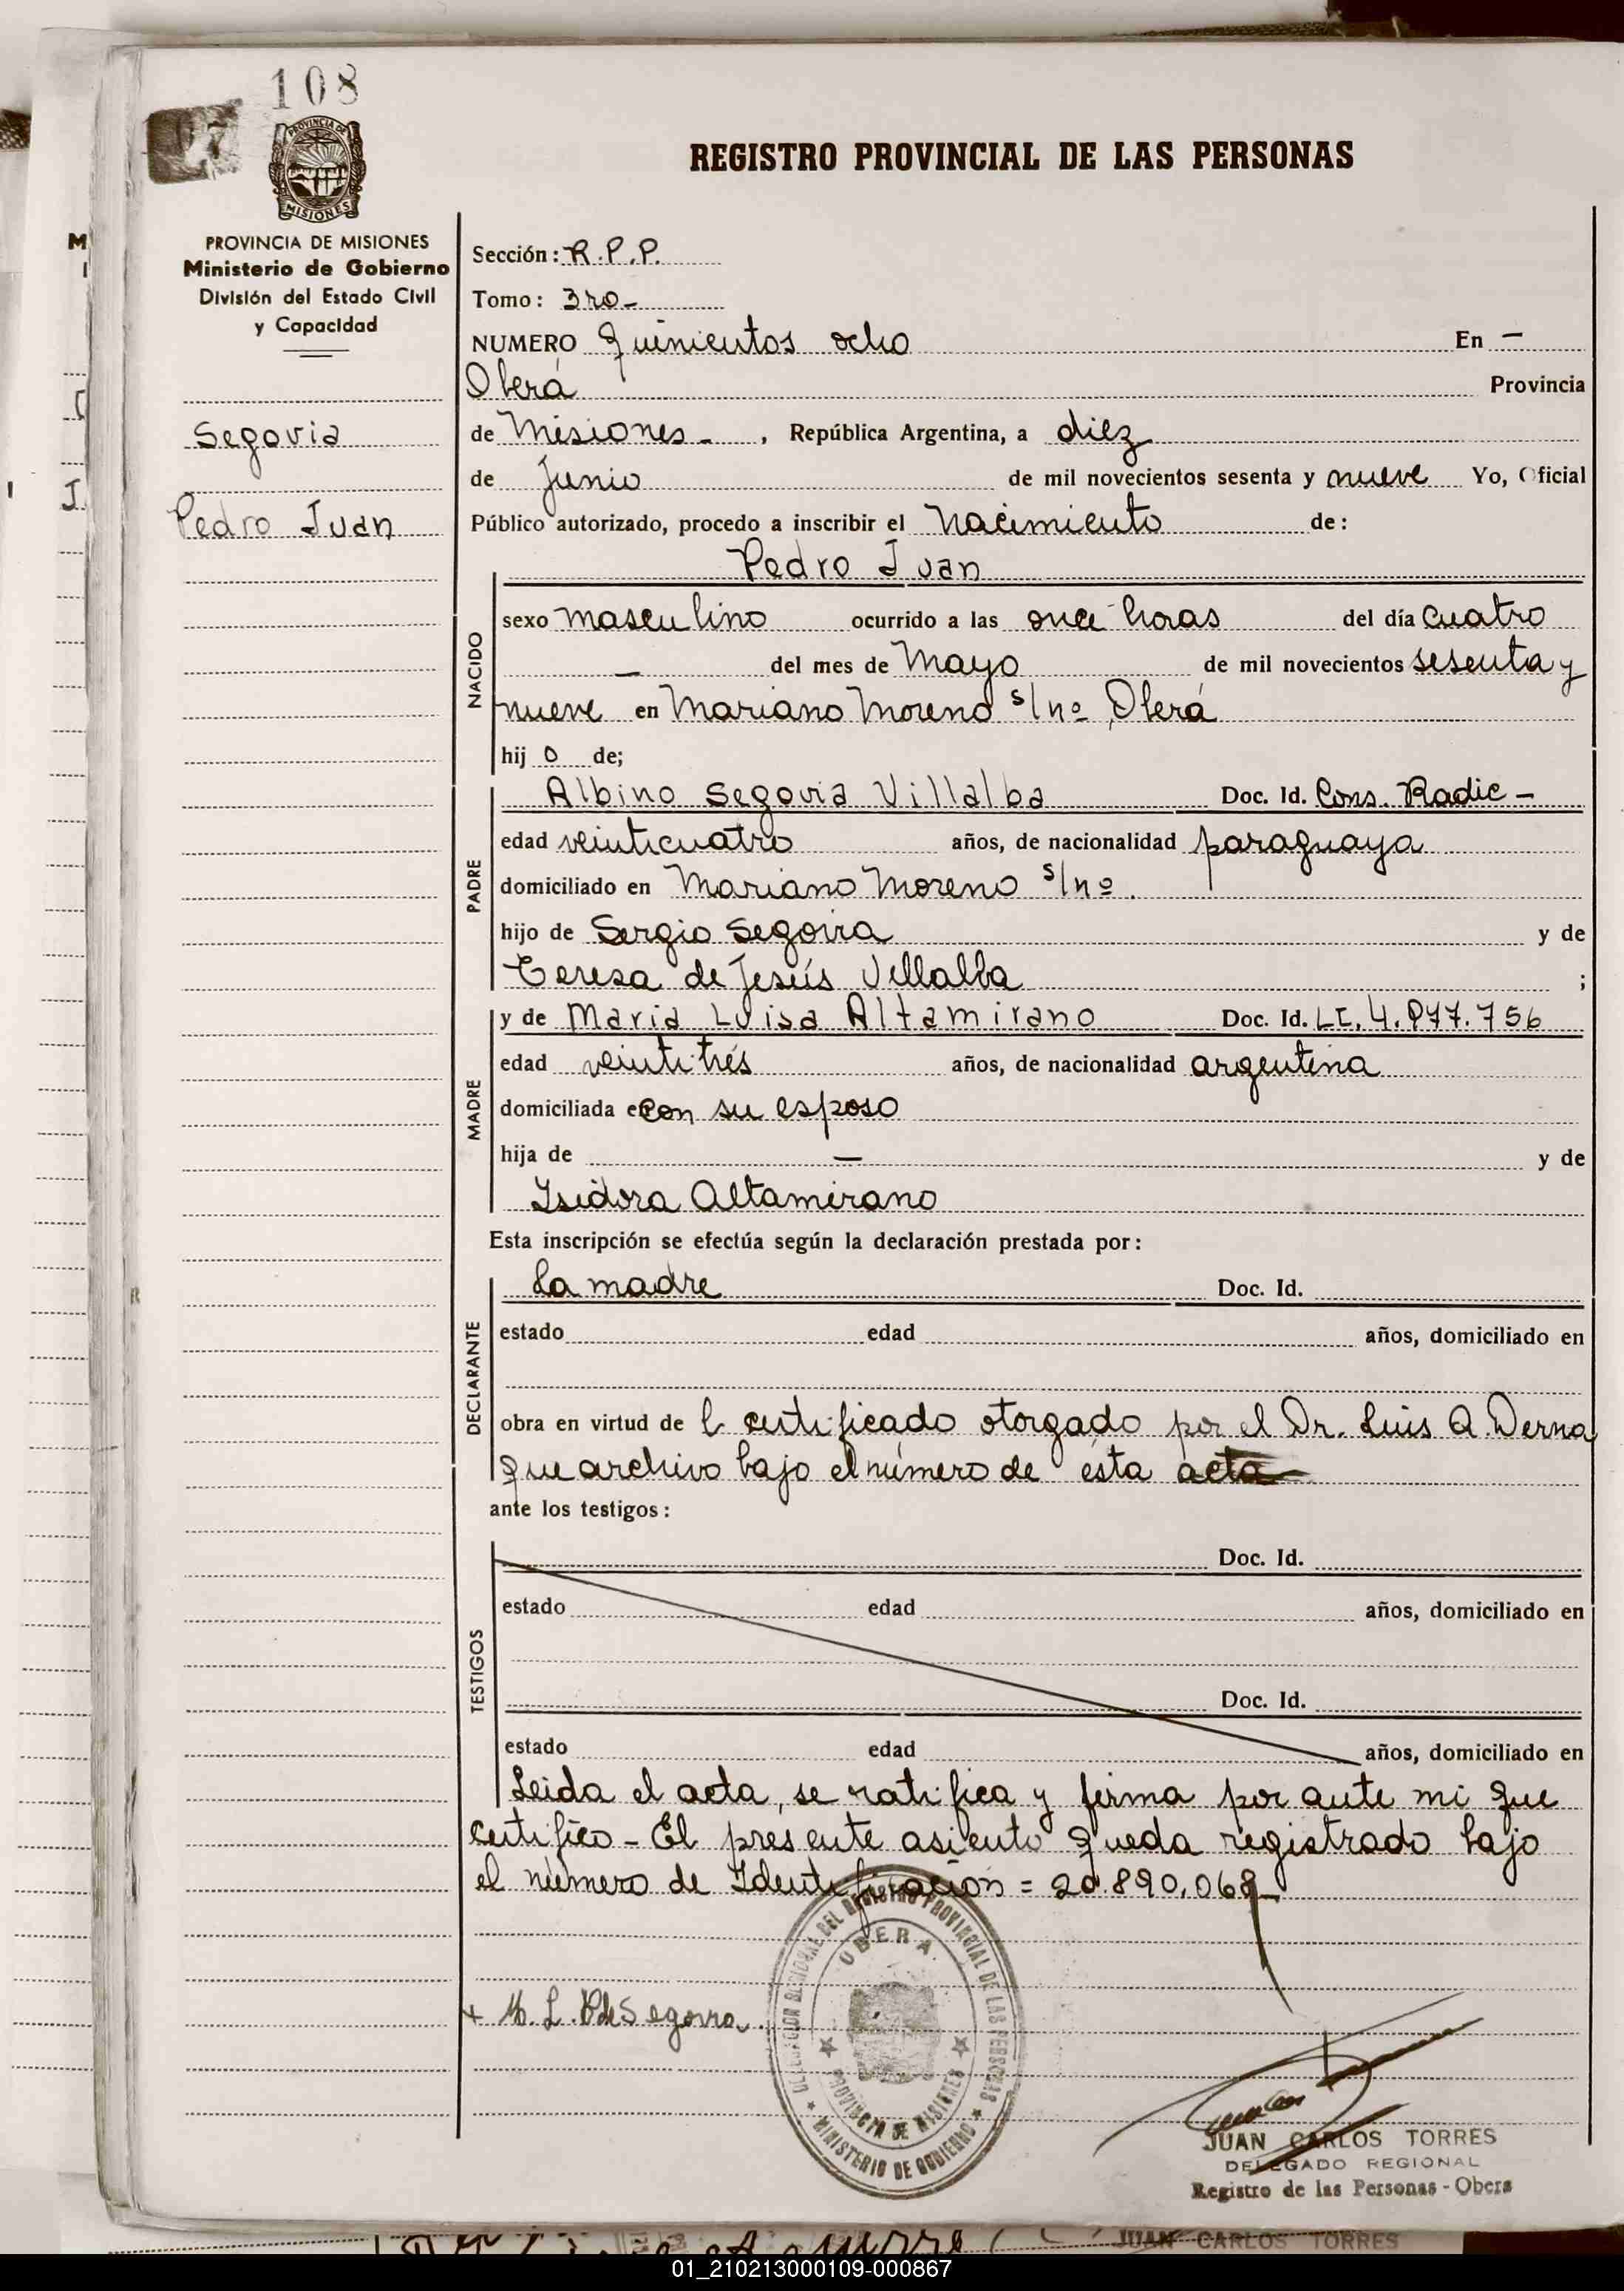 108
PROVINCIA DE
MISIONES
REGISTRO PROVINCIAL DE LAS PERSONAS
PROVINCIA DE MISIONES
Ministerio de Gobierno
División del Estado Civil
y Capacidad
Segovia
Pedro Juan
Sección: R.P.P.
Tomo: 3ro-
NUMERO Quinientos ocho En -
Oberá Provincia
de Misiones-, República Argentina, a diez
de Junio de mil novecientos sesenta y nueve Yo, Oficial
Público autorizado, procedo a inscribir el Nacimiento de:
Pedro Juan
NACIDO
sexo masculino ocurrido a las once horas del día cuatro
- del mes de Mayo de mil novecientos sesenta y
nueve en Mariano Moreno s/nº, Oberá
hij o de;
PADRE
Albino Segovia Villalba Doc. Id. Cons. Radic-
edad veinticuatro años, de nacionalidad paraguaya
domiciliado en Mariano Moreno s/nº.
hijo de Sergio Segovia y de
Teresa de Jesús Villalba ;
MADRE
y de Maria Luisa Altamirano Doc. Id. LC. 4.977.756
edad veintitrés años, de nacionalidad argentina
domiciliada en con su esposo
hija de - y de
Isidora Altamirano
Esta inscripción se efectúa según la declaración prestada por:
DECLARANTE
La madre Doc. Id.
estado edad años, domiciliado en
obra en virtud de l certificado otorgado por el Dr. Luis A. Derna
que archivo bajo el número de ésta acta
ante los testigos:
TESTIGOS
Doc. Id.
estado edad años, domiciliado en
Doc. Id.
estado edad años, domiciliado en
Leida el acta, se ratifica y firma por ante mi que
certifico - El presente asiento queda registrado bajo
el número de Identificación = 20.890.068-
DELEGACION REGIONAL DEL REGISTRO PROVINCIAL DE LAS PERSONAS
OBERA
PROVINCIA DE MISIONES
MINISTERIO DE GOBIERNO
M. L. de Segovia
JUAN CARLOS TORRES
DELEGADO REGIONAL
Registro de las Personas - Obera
JUAN CARLOS TORRES
01_210213000109-000867